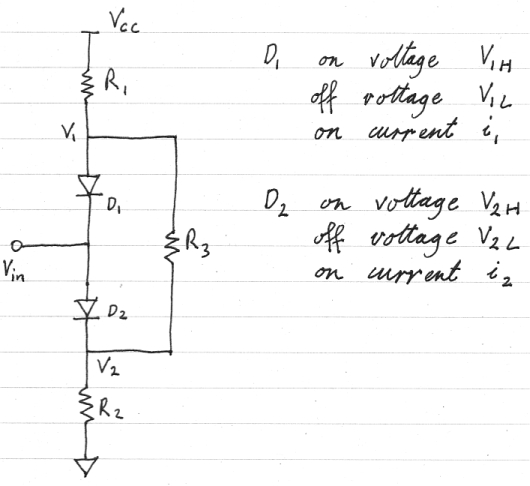 Vcc
R1
V1
D1
Vin
R3
D2
V2
R2
D1 on voltage V1H
off voltage V1L
on current i1
D2 on voltage V2H
off voltage V2L
on current i2